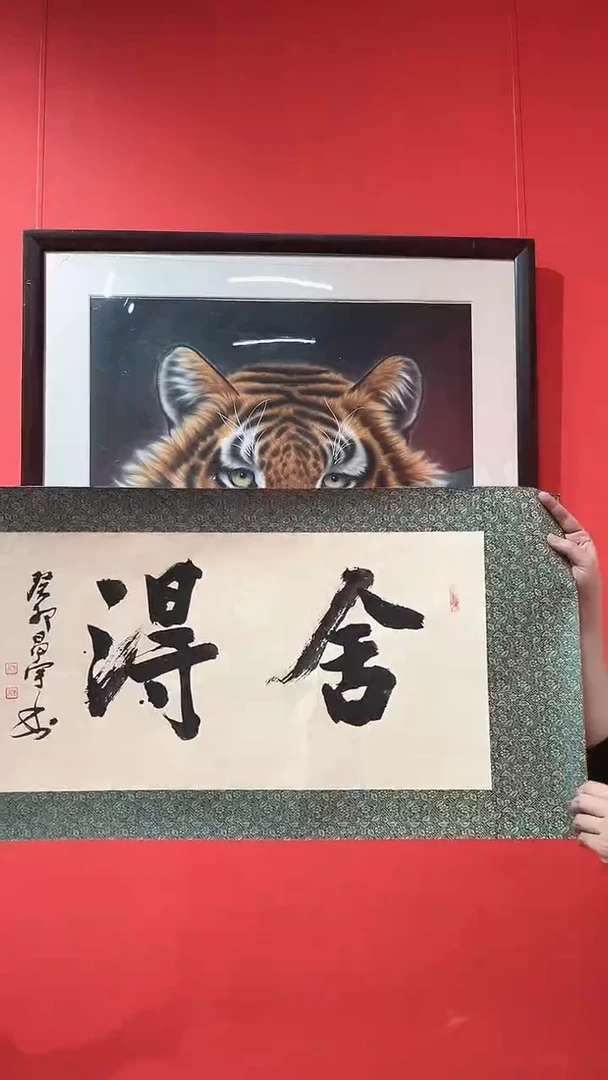 舍得
癸卯昌宇书